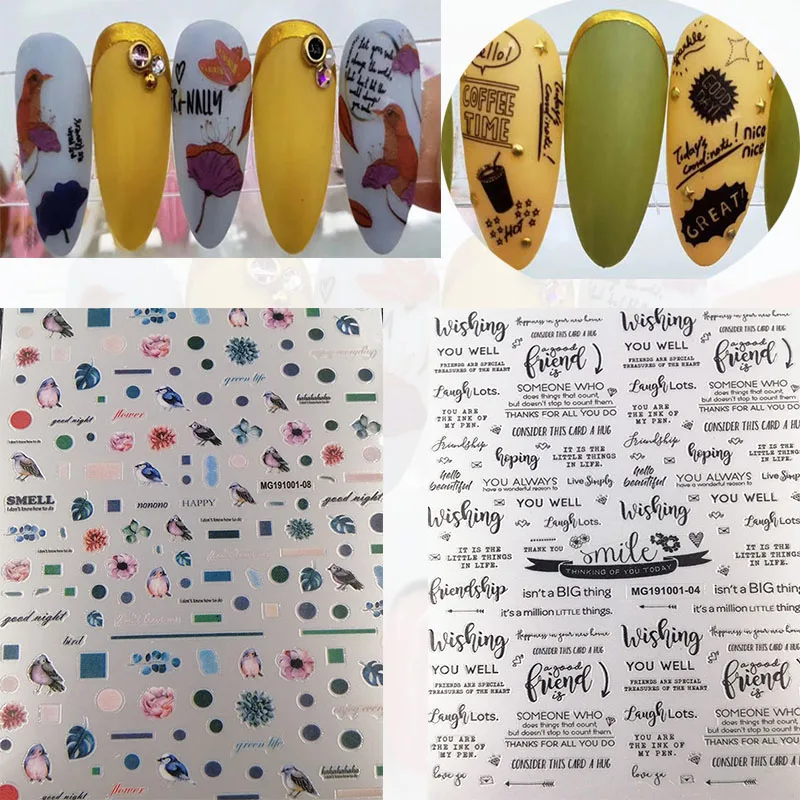 let your smile
change the world,
but don't let the
world change
your smile
R+NALLY
Hello!
COFFEE
TIME
Today's
Coordinate!
HOT
Sparkle
GOOD
Today's
Coordinate!
nice
nice
GREAT!
good night
flower
green life
hahahahaha
I don't know how to do
MG191001-08
SMELL
I don't know how to do
nonono
HAPPY
good night
I don't know how to do
good night
bird
I don't know how to do
green life
hahahahaha
I don't know how to do
good night
flower
Wishing
YOU WELL
Happiness in your new home
CONSIDER THIS CARD A HUG
a good
friend
is
FRIENDS ARE SPECIAL
TREASURES OF THE HEART
Laugh Lots.
SOMEONE WHO
does things that count,
but doesn't stop to count them.
YOU ARE
THE INK OF
MY PEN.
THANKS FOR ALL YOU DO
CONSIDER THIS CARD A HUG
Wishing
YOU WELL
Happiness in your new home
CONSIDER THIS CARD A HUG
a good
friend
is
FRIENDS ARE SPECIAL
TREASURES OF THE HEART
Laugh Lots.
SOMEONE WHO
does things that count,
but doesn't stop to count them.
YOU ARE
THE INK OF
MY PEN.
THANKS FOR ALL YOU DO
CONSIDER THIS CARD A HUG
friendship
hoping
IT IS THE
LITTLE THINGS
IN LIFE.
friendship
hoping
IT IS THE
LITTLE THINGS
IN LIFE.
hello
beautiful
YOU ALWAYS
have a wonderful reason to
Live Simply
hello
beautiful
YOU ALWAYS
have a wonderful reason to
Live Simply
Wishing
YOU WELL
Laugh Lots.
Wishing
YOU WELL
Laugh Lots.
IT IS THE
LITTLE THINGS
IN LIFE.
THANK YOU
smile
THINKING OF YOU TODAY
IT IS THE
LITTLE THINGS
IN LIFE.
friendship
isn't a BIG thing
MG191001-04
isn't a BIG thing
it's a million LITTLE things.
it's a million LITTLE things.
Wishing
YOU WELL
Happiness in your new home
CONSIDER THIS CARD A HUG
a good
friend
is
FRIENDS ARE SPECIAL
TREASURES OF THE HEART
Laugh Lots.
SOMEONE WHO
does things that count,
but doesn't stop to count them.
YOU ARE
THE INK OF
MY PEN.
THANKS FOR ALL YOU DO
CONSIDER THIS CARD A HUG
love ya
Wishing
YOU WELL
Happiness in your new home
CONSIDER THIS CARD A HUG
a good
friend
is
FRIENDS ARE SPECIAL
TREASURES OF THE HEART
Laugh Lots.
SOMEONE WHO
does things that count,
but doesn't stop to count them.
YOU ARE
THE INK OF
MY PEN.
THANKS FOR ALL YOU DO
CONSIDER THIS CARD A HUG
love ya